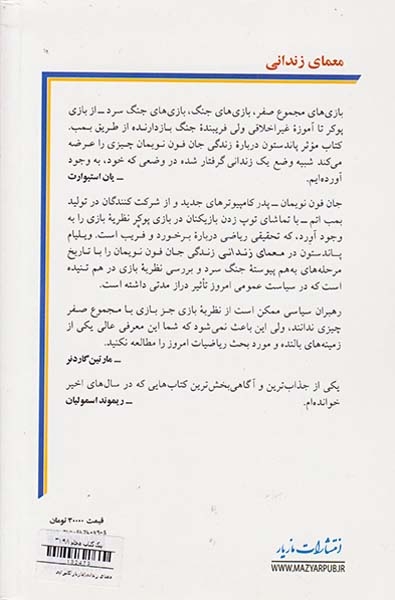 معمای زندانی
بازی‌های مجموع صفر، بازی‌های جنگ، بازی‌های جنگ سرد ــ از بازی
پوکر تا آموزهٔ غیراخلاقی ولی فریبندهٔ جنگ بازدارنده از طریق بمب.
کتاب مؤثر پاندستون دربارهٔ زندگی جان فون نویمان چیزی را عرضه
می‌کند شبیه وضع یک زندانی گرفتار شده در وضعی که خود، به وجود
آورده‌ایم. ــ یان استیوارت
جان فون نویمان ــ پدر کامپیوترهای جدید و از شرکت کنندگان در تولید
بمب اتم ــ با تماشای توپ زدن بازیکنان در بازی پوکر نظریهٔ بازی را به
وجود آورد، که تحقیقی ریاضی دربارهٔ برخورد و فریب است. ویلیام
پاندستون در معمای زندانی زندگی جان فون نویمان را با تاریخ
مرحله‌های به‌هم پیوستهٔ جنگ سرد و بررسی نظریهٔ بازی در هم تنیده
است که در سیاست عمومی امروز تأثیر دراز مدتی داشته است.
رهبران سیاسی ممکن است از نظریهٔ بازی جز بازی با مجموع صفر
چیزی ندانند، ولی این باعث نمی‌شود که شما این معرفی عالی یکی از
زمینه‌های بالنده و مورد بحث ریاضیات امروز را مطالعه نکنید.
ــ مارتین گاردنر
یکی از جذاب‌ترین و آگاهی‌بخش‌ترین کتاب‌هایی که در سال‌های اخیر
خوانده‌ام. ــ ریموند اسمولیان
قیمت ۳۰۰۰۰ تومان
انتشارات مازیار
WWW.MAZYARPUB.IR